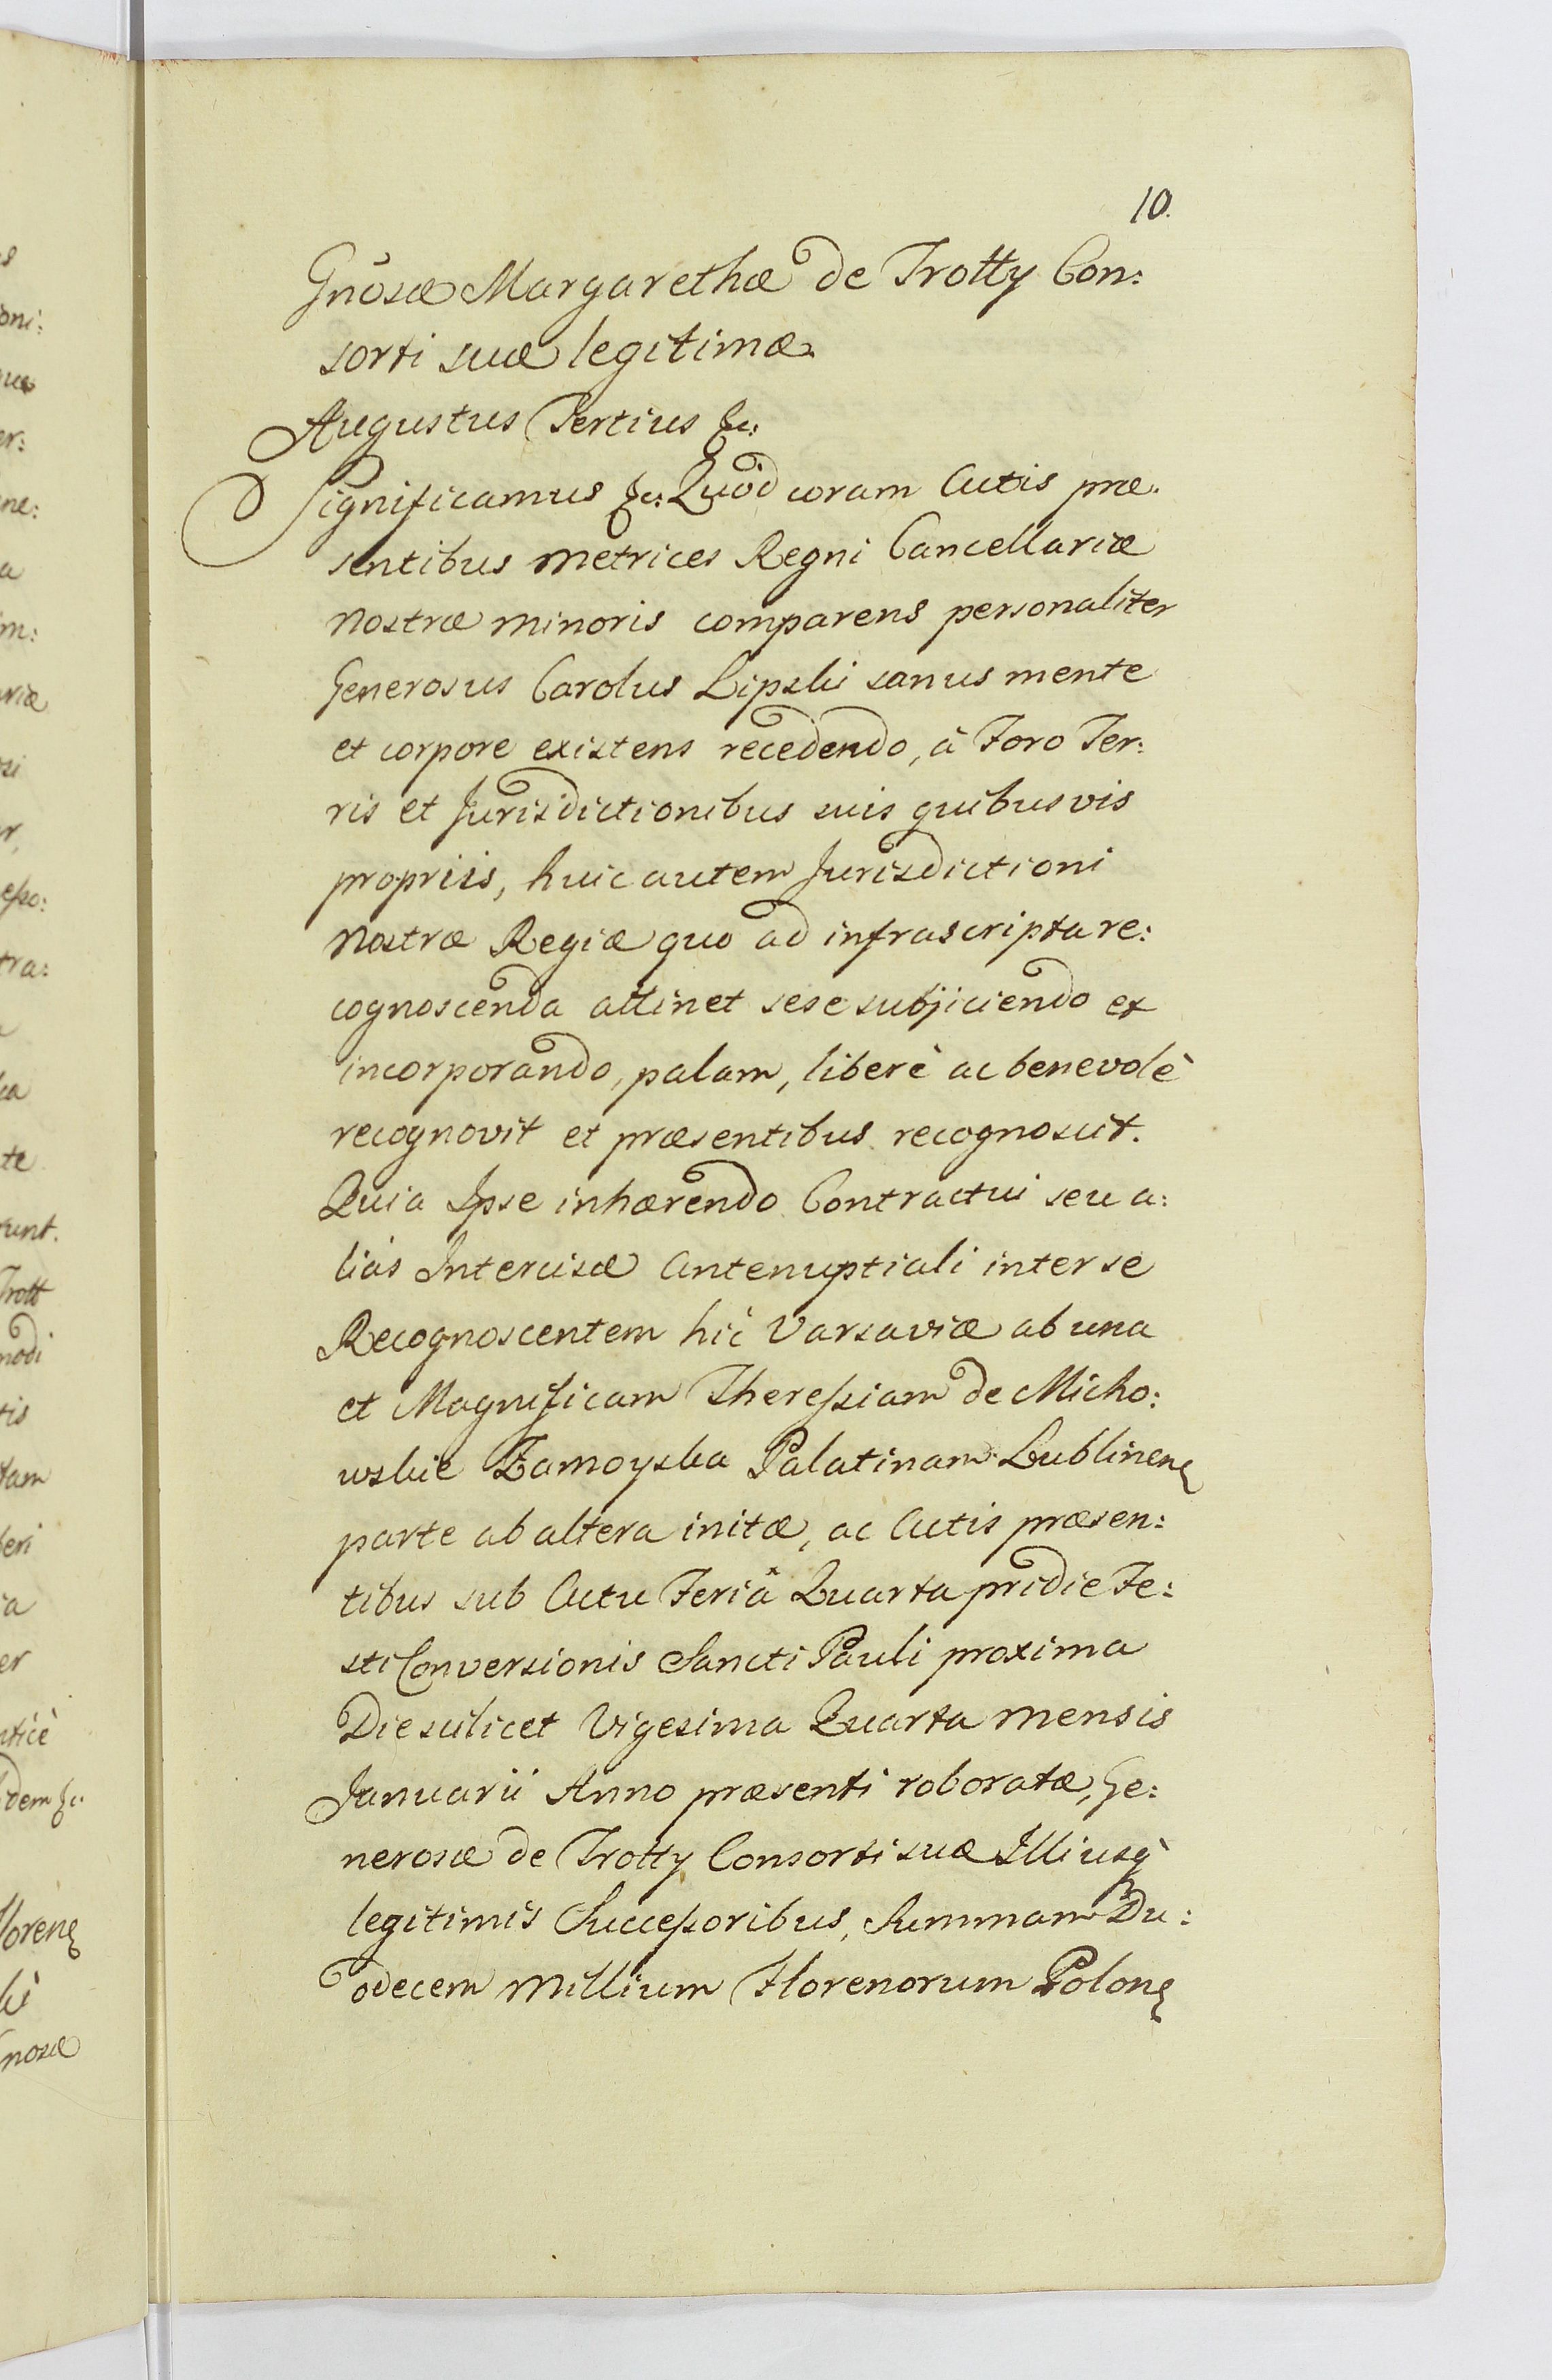 10.
Gnosæ Margarethæ de Trotty Con:
sorti suæ legitimæ.
Augustus Tertius &c:
Significamus &c: Quod coram Actis præ:
sentibus Metrices Regni Cancellariæ
Nostræ minoris comparens personaliter
Generosus Carolus Lipski sanus mente
et corpore existens recedendo, à Foro Ter:
ris et Jurisdictionibus suis quibusvis
propriis, huic autem Jurisdictioni
Nostræ Regiæ quo ad infrascripta re:
cognoscenda attinet sese subjiciendo et
incorporando, palam, liberè ac benevolè
recognovit et præsentibus recognoscit.
Quia Ipse inhærendo Contractui seu a:
liàs Intercisæ Antenuptiali inter se
Recognoscentem hic Varsaviæ ab una
et Magnificam Theressiam de Micho:
wskie Zamoyska Palatinam Lublinen
parte ab altera initæ, ac Actis præsen:
tibus sub Actu Feriâ Quarta pridie Fe:
sti Conversionis Sancti Pauli proxima
Die scilicet Vigesima Quarta mensis
Januarii Anno præsenti roboratæ, Ge:
nerosæ de Trotty Consorti suæ Illiusq
legitimis Successoribus, Summam Du:
odecem Millium Florenorum Polon